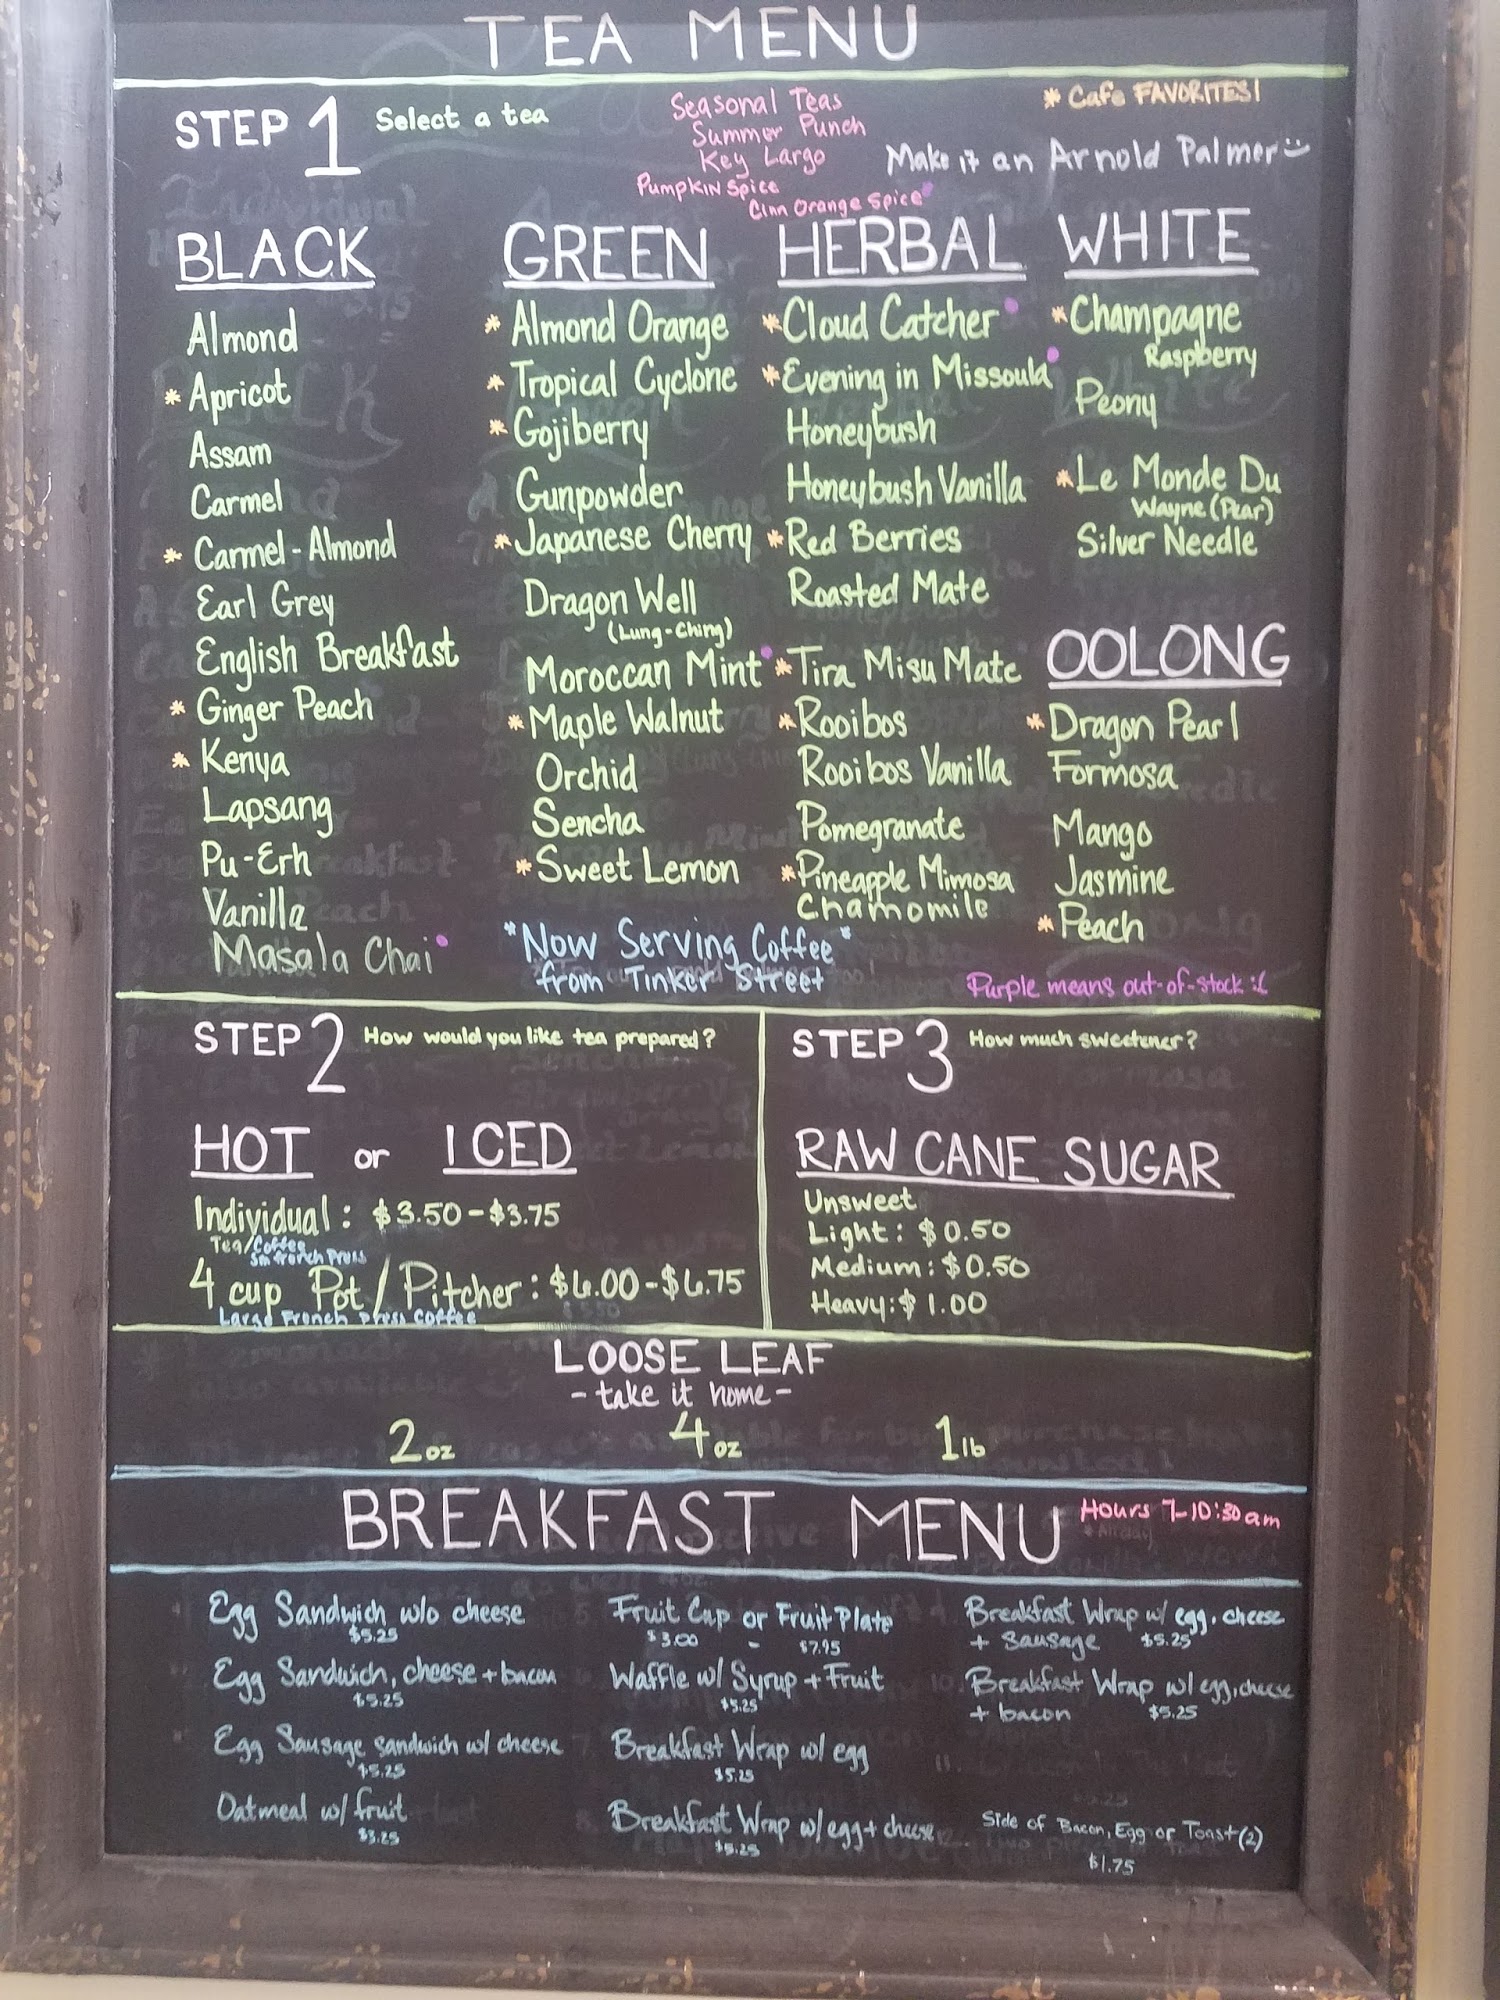 TEA MENU
STEP 1 Select a tea
Seasonal Teas
Summer Punch
Key Largo
Pumpkin Spice
Cinn Orange Spice
* Cafe FAVORITES!
Make it an Arnold Palmer
BLACK
Almond
* Apricot
Assam
Carmel
* Carmel-Almond
Earl Grey
English Breakfast
* Ginger Peach
* Kenya
Lapsang
Pu-Erh
Vanilla
Masala Chai
GREEN
* Almond Orange
* Tropical Cyclone
* Gojiberry
Gunpowder
* Japanese Cherry
Dragon Well
(Lung-Ching)
Moroccan Mint
* Maple Walnut
Orchid
Sencha
* Sweet Lemon
HERBAL
* Cloud Catcher
* Evening in Missoula
Honeybush
Honeybush Vanilla
* Red Berries
Roasted Mate
* Tira Misu Mate
* Rooibos
Rooibos Vanilla
Pomegranate
* Pineapple Mimosa
Chamomile
WHITE
* Champagne
Raspberry
Peony
* Le Monde Du
Wayne (Pear)
Silver Needle
OOLONG
* Dragon Pearl
Formosa
Mango
Jasmine
* Peach
"Now Serving Coffee"
from Tinker Street
Purple means out-of-stock :(
STEP 2 How would you like tea prepared?
HOT or ICED
Individual: $3.50-$3.75
Tea/Coffee
Sm french Press
4 cup Pot / Pitcher: $6.00-$6.75
Large French press coffee
STEP 3 How much sweetener?
RAW CANE SUGAR
Unsweet
Light: $0.50
Medium: $0.50
Heavy: $1.00
LOOSE LEAF
- take it home -
2 oz 4 oz 1 lb
BREAKFAST MENU Hours 7-10:30am
Egg Sandwich w/o cheese
$5.25
Egg Sandwich, cheese + bacon
$5.25
Egg Sausage sandwich w/ cheese
$5.25
Oatmeal w/ fruit
$3.25
Fruit Cup or Fruit Plate
$3.00 - $7.95
Waffle w/ Syrup + Fruit
$5.25
Breakfast Wrap w/ egg
$5.25
Breakfast Wrap w/ egg + cheese
$5.25
Breakfast Wrap w/ egg, cheese
+ sausage $5.25
Breakfast Wrap w/ egg, cheese
+ bacon $5.25
Side of Bacon, Egg or Toast (2)
$1.75